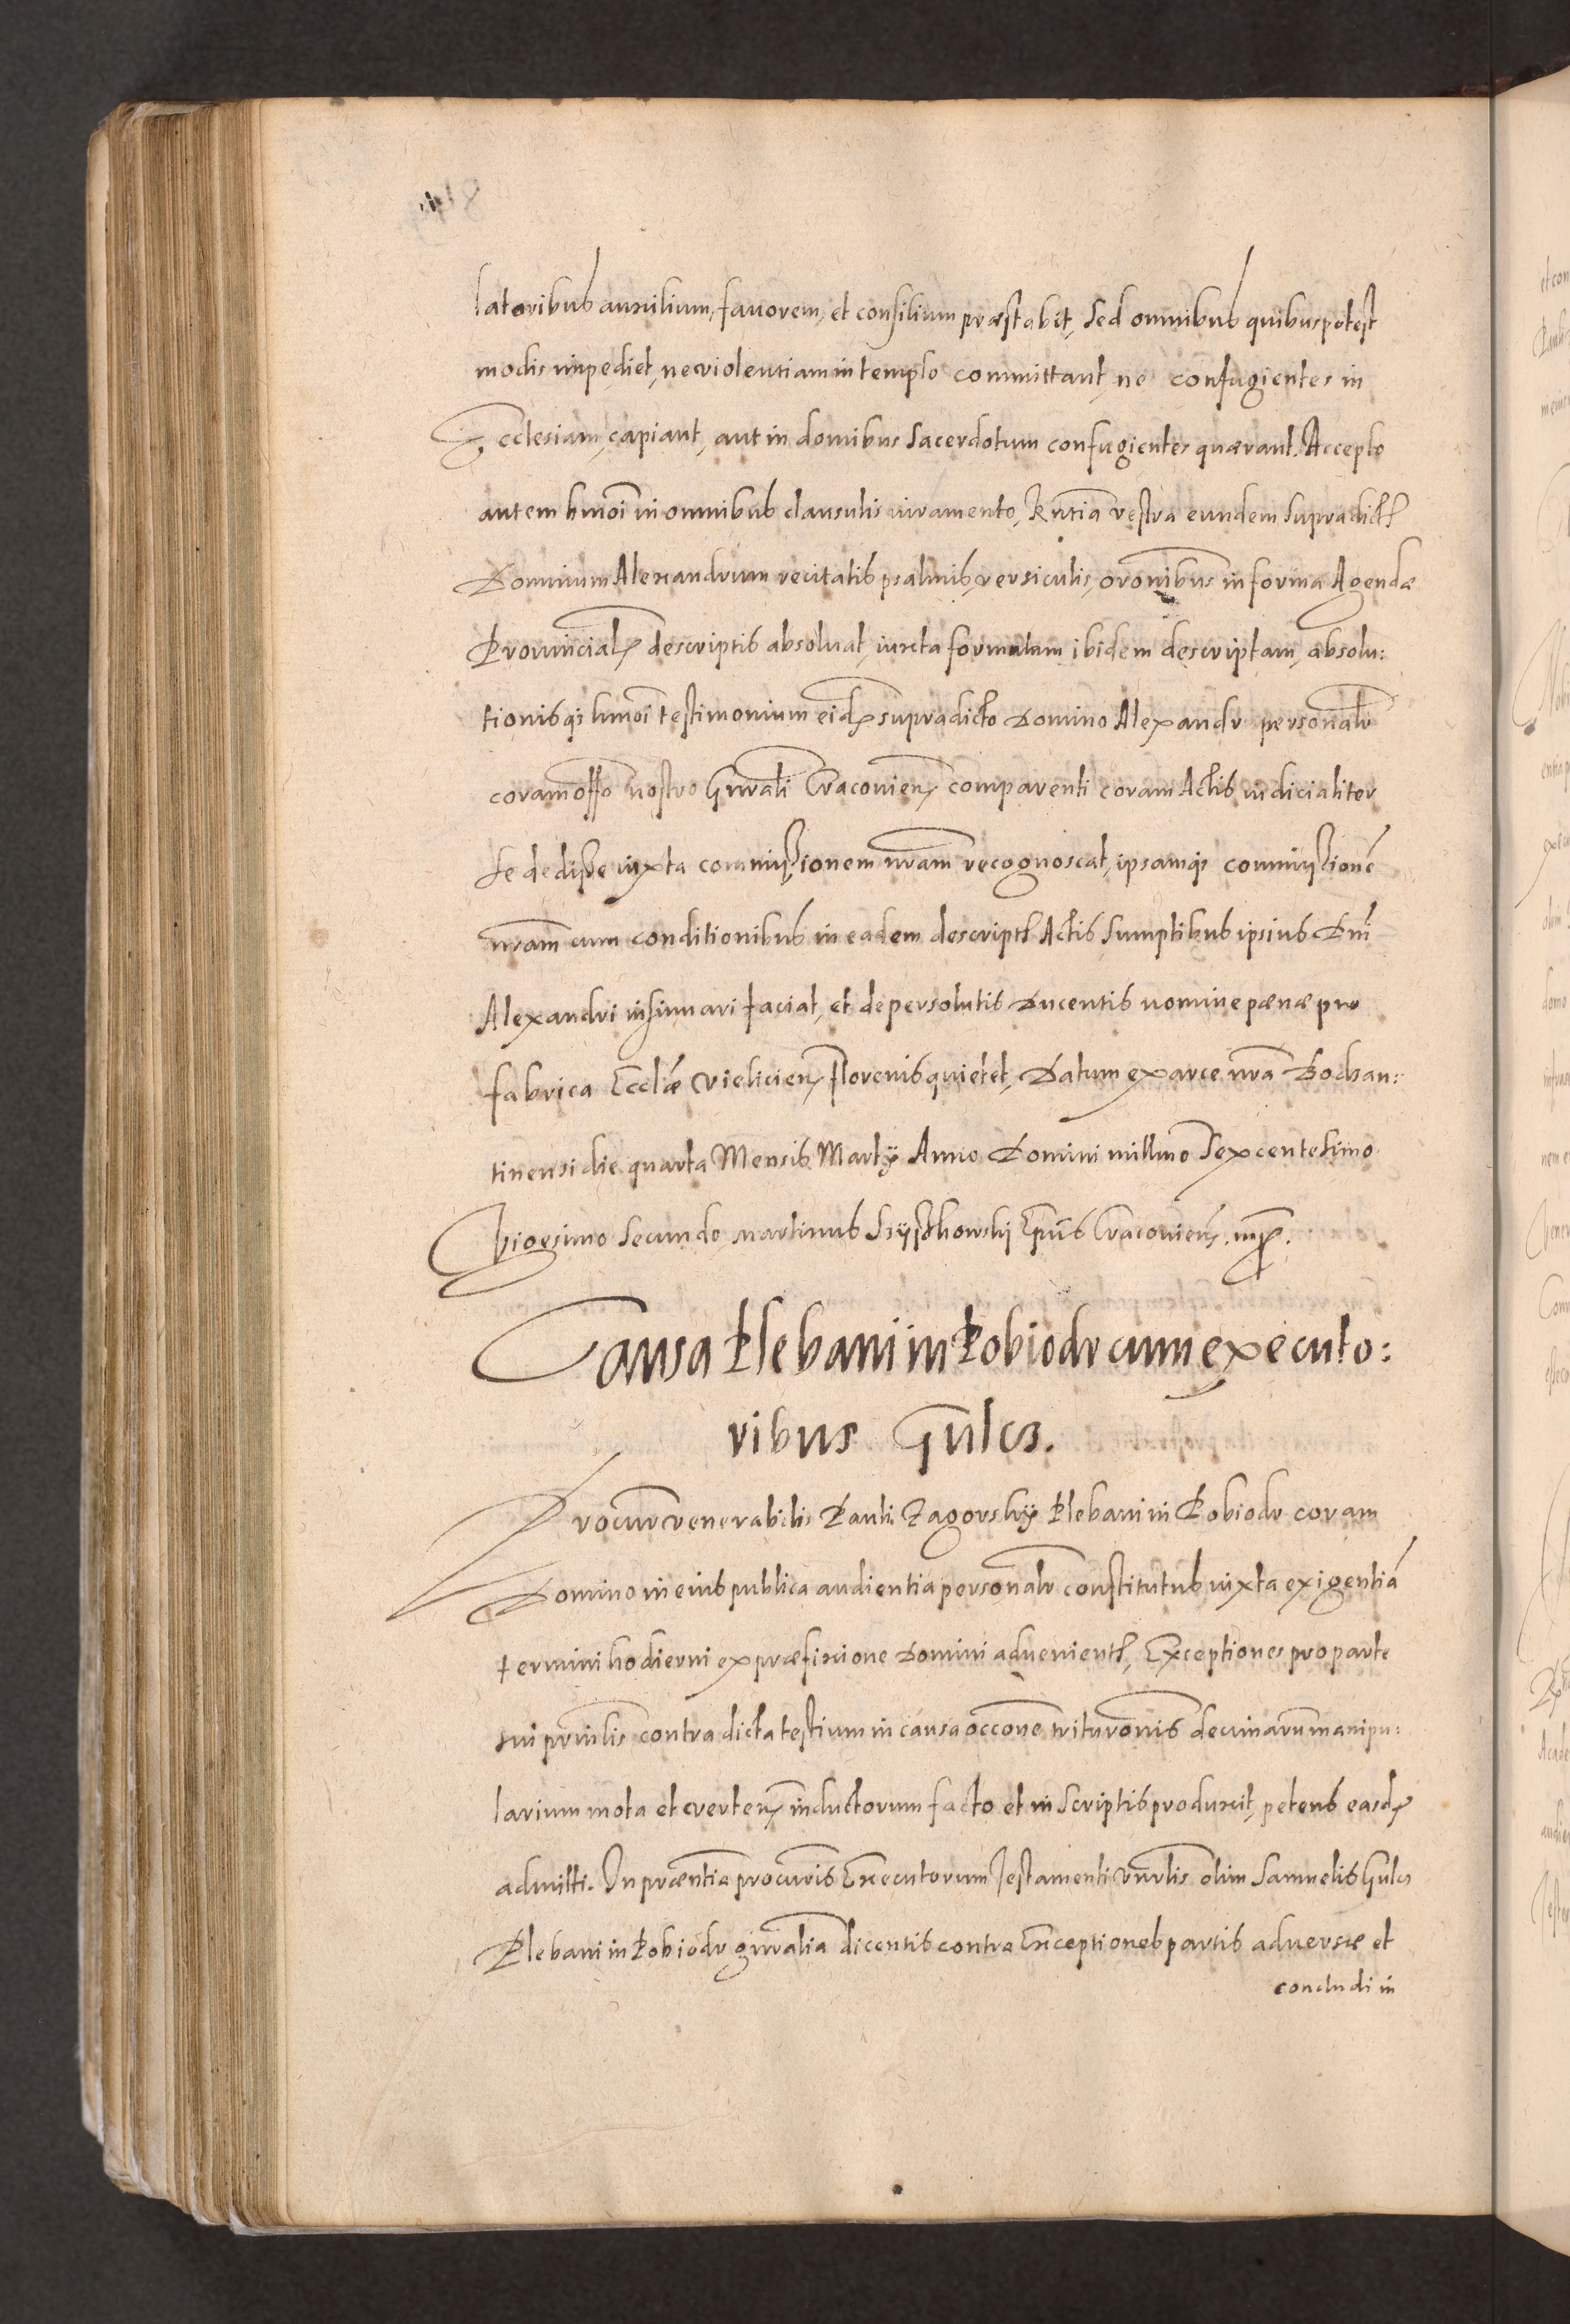 latoribus auxilium, fauorem, et consilium præstabit, Sed omnibus quibus potest
modis impediet, ne violentiam in templo committant, ne confugientes in
Ecclesiam, capiant, aut in domibus Sacerdotum confugientes quærant. Accepto
autem hmoi in omnibus clausulis iuramento, Rntia vestra eundem Supradict
Dominum Alexandrum recitatis psalmis, versiculis, oronibus in forma Agendæ
Prouincial descriptis absoluat, iuxta formulam ibidem descriptam, absolu:
tionisq hmoi testimonium eid supradicto Domino Alexandr personalr
coram offo nostro Gnrali Cracouien comparenti coram Actis iudicialiter
Se dedisse iuxta commissionem nram recognoscat, ipsamq commissione
nram cum conditionibus in eadem descript Actis Sumptibus ipsius Dni
Alexandri insinuari faciat, et de persolutis Ducentis nomine pænæ pro
fabrica Eccliæ Vielicien florenis quietet, Datum ex arce nra Bodzan:
tinensi die quarta Mensis Martij Anno Domini millmo Sexcentesimo
Vigesimo Secundo, martinus Szyszkowskj Epus Cracouiens. mp.
Causa Plebani in Pobiedr cum executo:
ribus Gulcz.
Procurr venerabilis Pauli Zagorskj Plebani in Pobiedr coram
Domino in eius publica audientia personalr constitutus iuxta exigentia
termini hodierni ex præfixione Domini aduenient, Exceptiones pro parte
sui prinlis contra dicta testium in causa occone trituronis decimarum manipu:
larium mota et verten inductorum facto et in Scriptis produxit, petens easd
admitti. In præntia procuris Executorum Testamenti vnrlis olim Samuelis Gulcz
Plebani in Pobiedr gnralia dicentis contra Exceptiones partis aduersæ et
concludi in